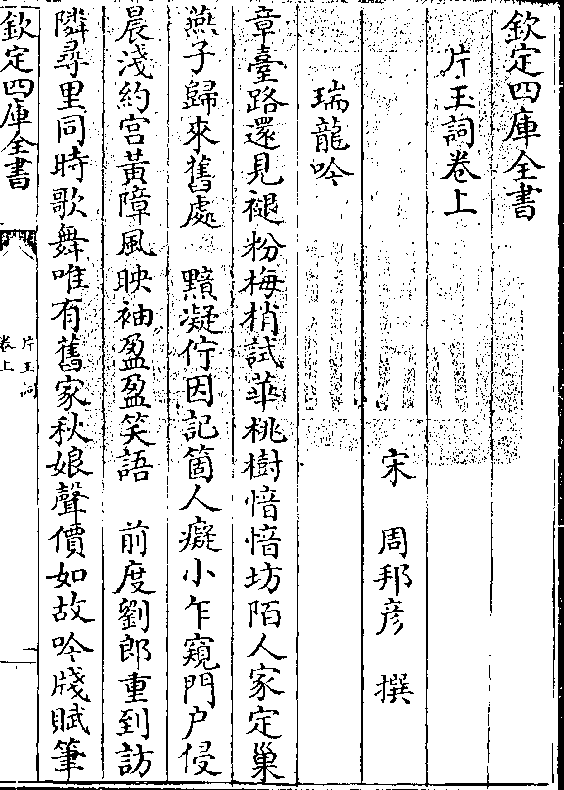 欽定四庫全書
片玉詞卷上
宋　周邦彦　撰
瑞龍吟
章臺路還見褪粉梅梢試華桃樹愔愔坊陌人家定巢
燕子歸來舊處　黯凝佇因記箇人癡小乍窺門户侵
晨淺約宫黃障風映袖盈盈笑語　前度劉郎重到訪
隣尋里同時歌舞唯有舊家秋娘聲價如故吟牋賦筆
欽定四庫全書
片玉詞
卷上
一